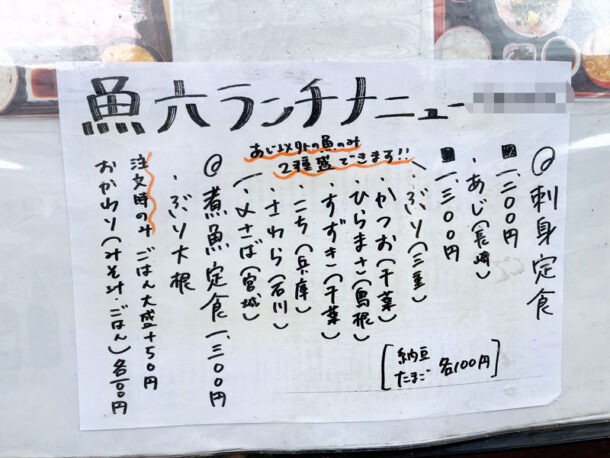 魚六ランチメニュー
@刺身定食
■一、二〇〇円
・あじ(長崎)
■一、三〇〇円
・ぶり(三重)
・かつお(千葉)
・ひらまさ(島根)
・すずき(千葉)
・こち(兵庫)
・さわら(石川)
・〆さば(宮城)
あじ以外の魚のみ
2種盛できます!!
[納豆
たまご 各100円]
@煮魚定食 一、三〇〇円
・ぶり大根
注文時のみ ごはん大盛+50円
おかわり(みそ汁・ごはん)各100円